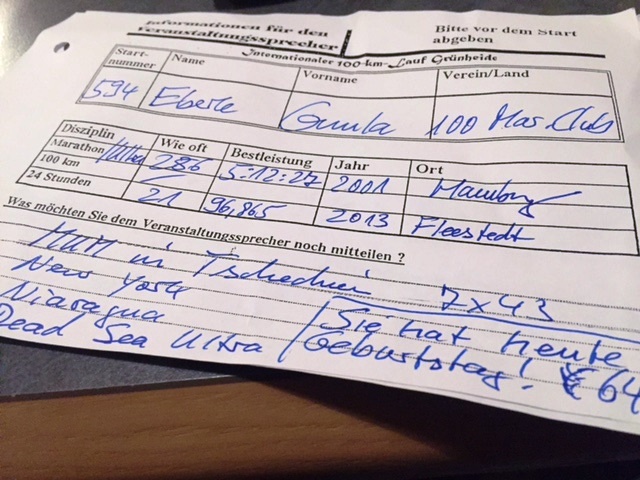 Informationen für den
Veranstaltungssprecher
Bitte vor dem Start
abgeben
Internationaler 100-km-Lauf Grünheide
Start-
nummer
Name
Vorname
Verein/Land
594 Eberle Gunla 100 Mar. Club
Disziplin Wie oft Bestleistung Jahr Ort
Marathon 286 5:12:27 2001 Hamburg
100 km
24 Stunden 21 96,865 2013 Fleestedt
Was möchten Sie dem Veranstaltungssprecher noch mitteilen ?
in Tschechien 7x43
New York
Niaragua
Dead Sea Ultra
Sie hat heute
Geburtstag! 64